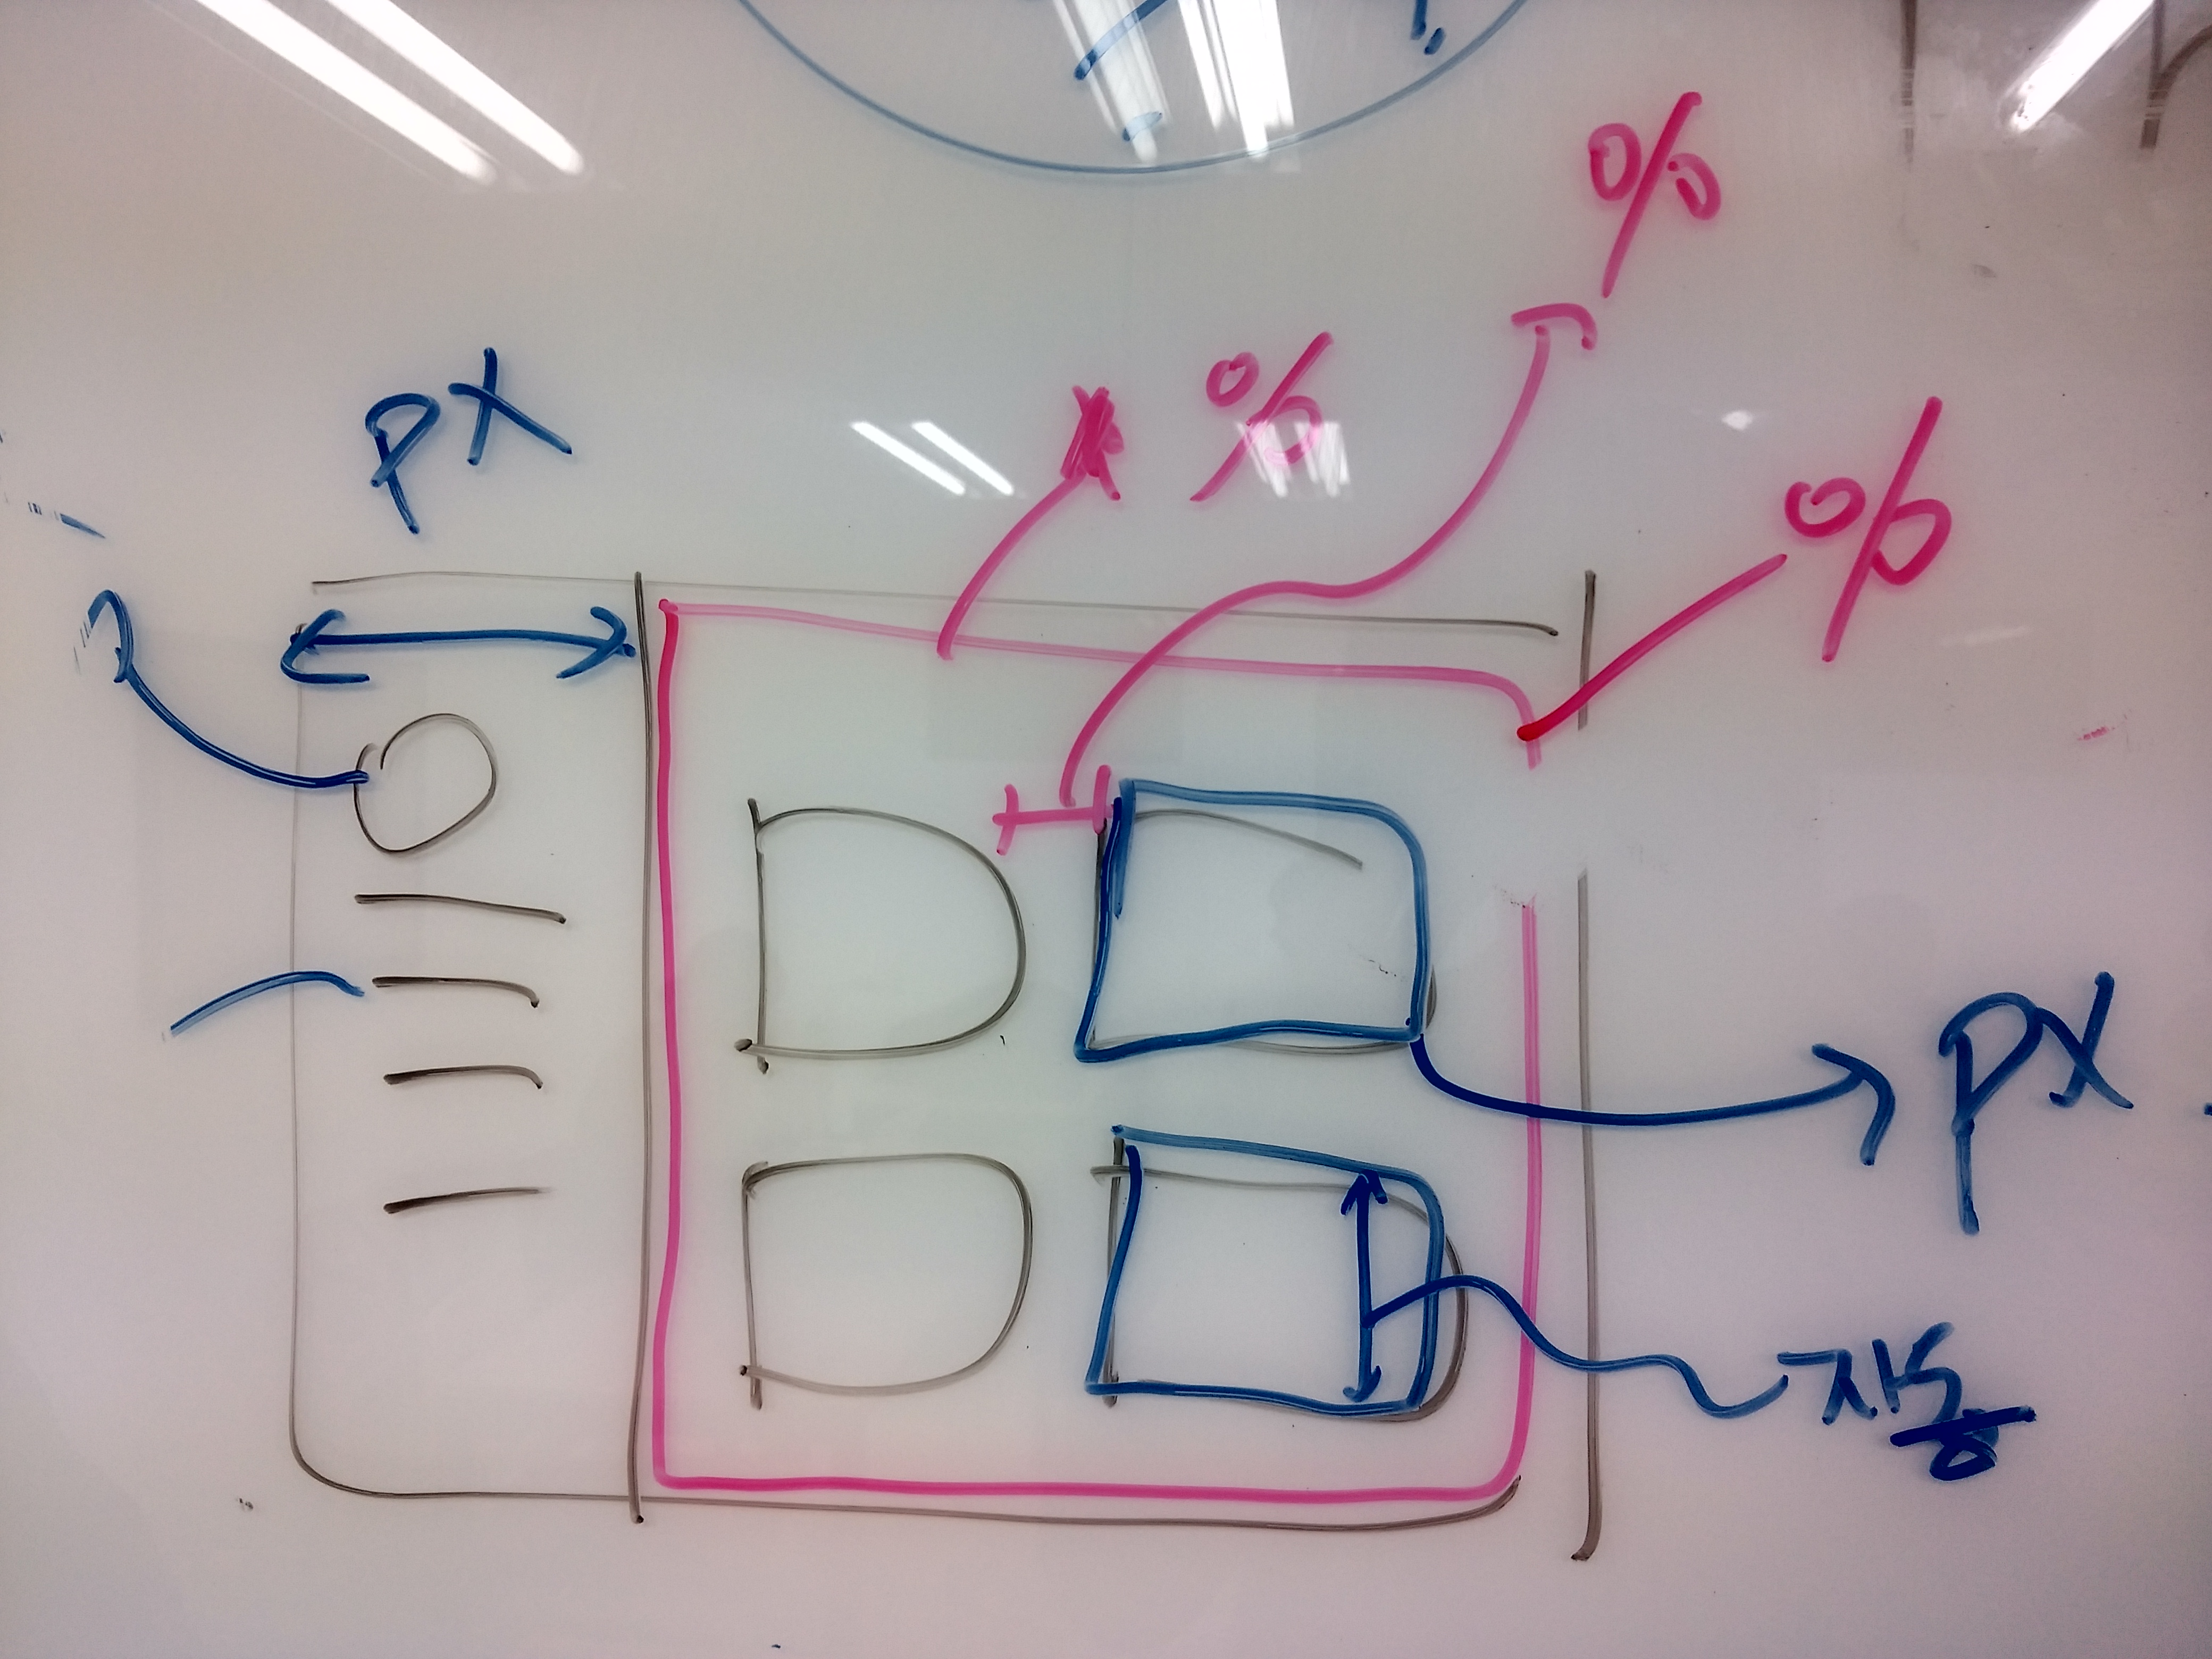 %
%
px
%
px
자동